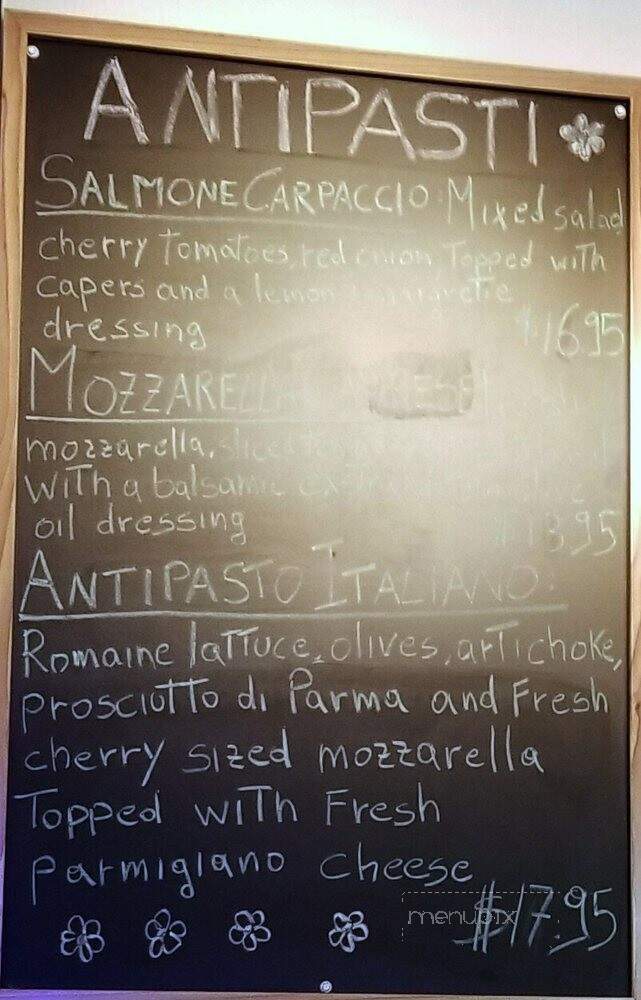 ANTIPASTI
SALMONE CARPACCIO: Mixed salad
cherry tomatoes, red onion Topped with
capers and a lemon vinaigrette
dressing $16.95
MOZZARELLA CAPRESE
mozzarella, sliced
with a balsamic
oil dressing $13.95
ANTIPASTO ITALIANO:
Romaine lattuce, olives, artichoke,
prosciutto di Parma and Fresh
cherry sized mozzarella
Topped with Fresh
parmigiano cheese
menupix $17.95